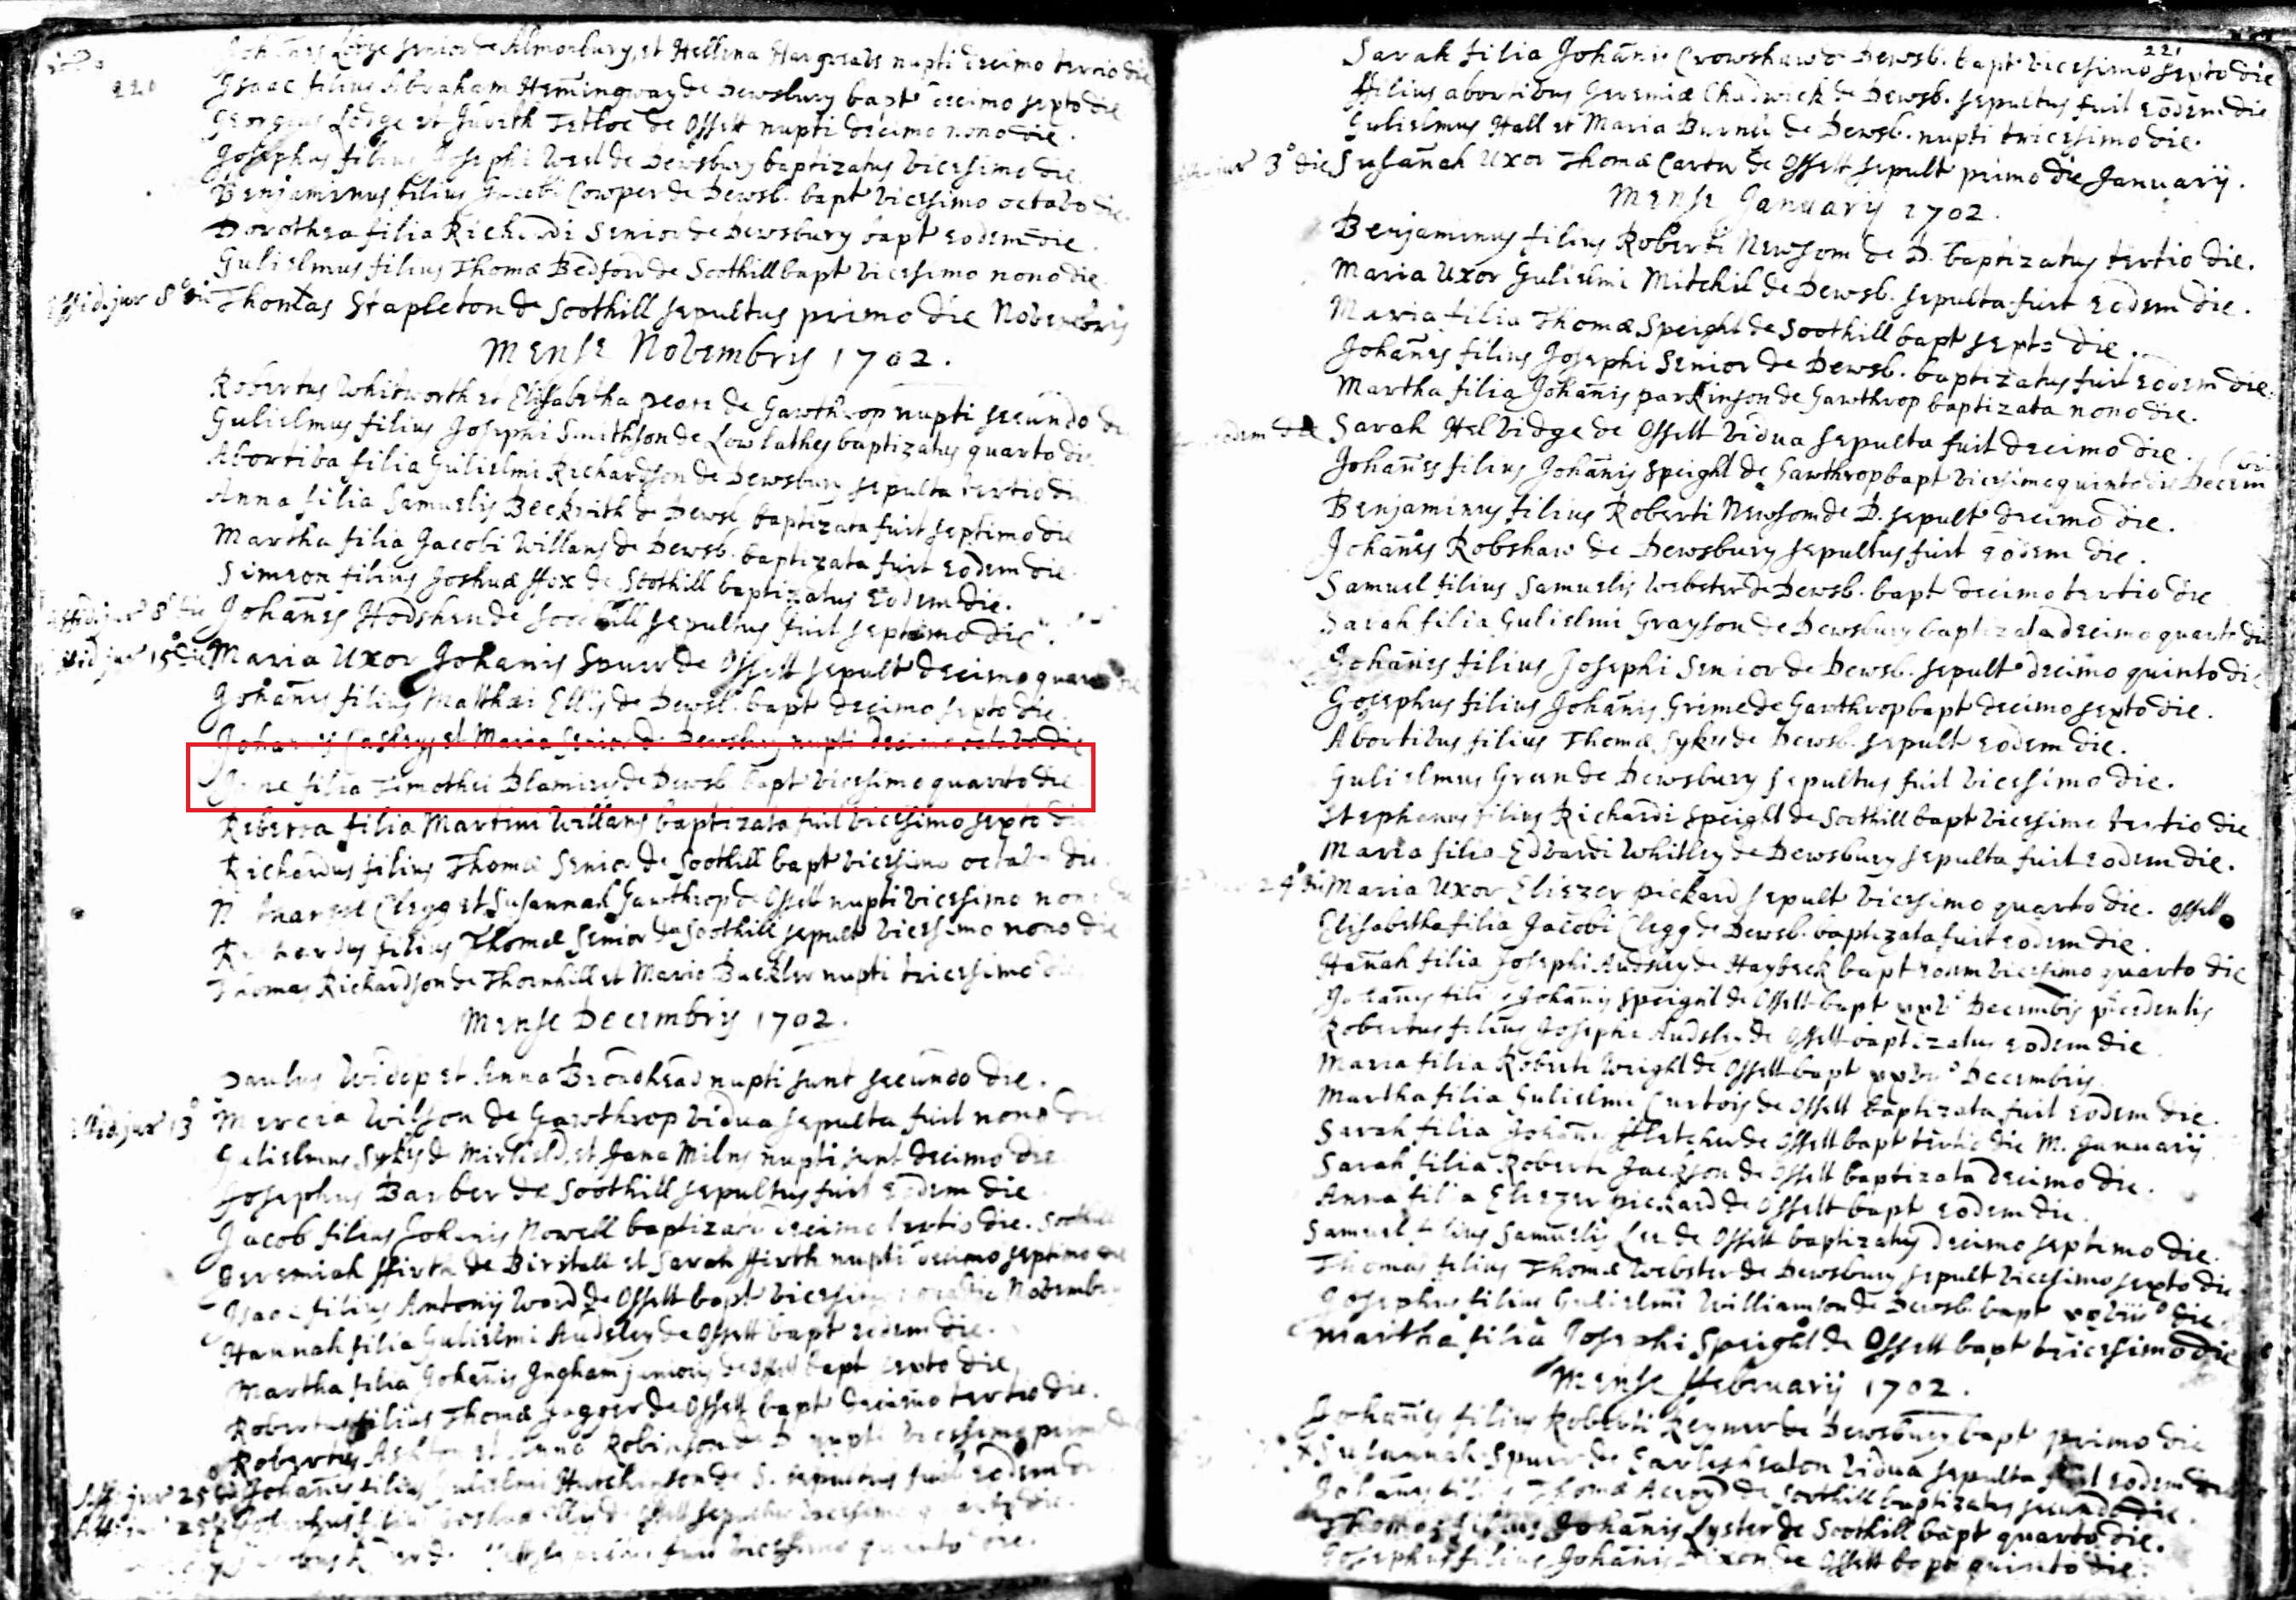 220
Johannes Lodge senior de Almonbury, et Hellena Hargreaves nupti decimo tertio die
Isaac filius Abraham Hemingway de Dewsbury bapt decimo sexto die
Georgius Lodge et Judith de Ossett nupti decimo nono die.
Josephus filius Josephi West de Dewsbury baptizatus vicesimo die
Benjaminus filius Jacobi Cowper de Dewsb. bapt vicesimo octavo die.
Dorothea filia Richardi Senior de Dewsbury bapt eodem die.
Gulielmus filius Thomæ Bedford de Soothill bapt vicesimo nono die
Thomas Stapleton de Soothill sepultus primo die Novembris
Mense Novembris 1702.
Robertus Whitworth et Elisabetha de Gawthrop nupti secundo
Gulielmus filius Josephi Smithson de Low lathes baptizatus quarto die
Abortiva filia Gulielmi Richardson de Dewsbury sepulta tertio die
Anna filia Samuelis Beckwith de Dewsb baptizata fuit septimo die
Martha filia Jacobi Willans de Dewsb. baptizata fuit eodem die
Simeon filius Joshuæ ffox de Soothill baptizatus eodem die.
Johañes Hodshon de Soothill sepultus fuit septimo die.
Maria Uxor Johanis Spurr de Ossett sepult decimo quarto die
Johañes filius Matthæi Ellis de Dewsb. bapt decimo sexto die.
et Maria Senior de Dewsbury nupti decimo octavo die
Jane filia Timothei Blamires de Dewsb. bapt vicesimo quarto die
Rebecca filia Martini Willans baptizata fuit vicesimo sexto die
Richardus filius Thomæ Senior de Soothill bapt vicesimo octavo die
Clegg et Susannah Gawthrop de Ossett nupti vicesimo nono
Richardus filius Thomæ Senior de Soothill sepult vicesimo nono die
Thomas Richardson de Thornhill et Maria Buckler nupti tricesimo die
Mense Decembris 1702.
Paulus Widop et Anna Broadhead nupti sunt secundo die.
Mercia Wilson de Gawthrop vidua sepulta fuit nono die
Gulielmus Sykes de Mirfield, et Jana Milns nupti sunt decimo die
Josephus Barber de Soothill sepultus fuit eodem die
Jacob filius Johanis Nowell baptizatus decimo tertio die. Soothill
Jeremiah ffirth de Birstall et Sarah ffirth nupti decimo septimo die
Isaac filius Antonij Word de Ossett bapt Novembr
Hannah filia Gulielmi Audsley de Ossett bapt eodem die.
Martha filia Johañis Ingham junioris de Ossett bapt sexto die
Robertus filius Thomæ Jagger de Ossett bapt decimo tertio die.
Robertus et Anna Robinson de D nupti vicesimo primo
Johañes filius Gulielmi Hutchinson de S. sepultus fuit eodem
221
Sarah filia Johañis Crowshaw de Dewsb. bapt vicesimo sexto die
ffilius abortivus Jeremiæ Chadwick de Dewsb. sepultus fuit eodem die
Gulielmus Hall et Maria de Dewsb. nupti tricesimo die.
3° die Susañah Uxor Thomæ Carter de Ossett sepult primo die Januarij.
Mense Januarij 1702.
Benjaminus filius Roberti Newsom de D. baptizatus tertio die.
Maria Uxor Gulielmi Mitchil de Dewsb. sepulta fuit eodem die.
Maria filia Thomæ Speight de Soothill bapt septo die.
Johañes filius Josephi Senior de Dewsb. baptizatus fuit eodem die.
Martha filia Johañis parkinson de Gawthrop baptizata nono die.
Sarah Helvidge de Ossett vidua sepulta fuit decimo die.
Johañes filius Johañis Speight de Gawthrop bapt vicesimo quinto die Decem
Benjaminus filius Roberti Newsom de D. sepult decimo die.
Johañes Robshaw de Dewsbury sepultus fuit eodem die.
Samuel filius Samuelis Webster de Dewsb. bapt decimo tertio die
Sarah filia Gulielmi Grayson de Dewsbury baptizata decimo quarto die
Johañes filius Josephi Senior de Dewsb. sepult decimo quinto die
Josephus filius Johañis Grime de Gawthrop bapt decimo sexto die.
Abortivus filius Thomæ Sykes de Dewsb. sepult eodem die.
Gulielmus Green de Dewsbury sepultus fuit vicesimo die.
Stephanus filius Richardi Speight de Soothill bapt vicesimo tertio die
Maria filia Edvardi Whitley de Dewsbury sepulta fuit eodem die.
Maria Uxor Eliezer Pickard sepult vicesimo quarto die. Ossett
Elisabetha filia Jacobi Clegg de Dewsb. baptizata fuit eodem die.
Hañah filia Josephi Audsley de Haybeck bapt eodem vicesimo quarto die
Johañes filius Johañis Speight de Ossett bapt Decembis
Robertus filius Josephi Audsley de Ossett baptizatus eodem die
Maria filia Roberti Wright de Ossett bapt Decembris
Martha filia Gulielmi Curtois de Ossett baptizata fuit eodem die.
Sarah filia Johañis ffletcher de Ossett bapt tertio die M. Januarij
Sarah filia Roberti Jackson de Ossett baptizata decimo die.
Anna filia Eliezer Pickard de Ossett bapt eodem die.
Samuel filius Samuelis Lee de Ossett baptizatus decimo septimo die.
Thomas filius Thomæ Webster de Dewsbury sepult vicesimo sexto die
Josephus filius Gulielmi Williamson de Dewsb. bapt die.
Martha filia Josephi Speight de Ossett bapt tricesimo die
Mense ffebruarij 1702.
Johañes filius Roberti Reyner de Dewsbury bapt primo die
Susannah Spurr de Earlesheaton vidua sepulta fuit eodem die
Johañes filius Thomæ de Soothill baptizatus secundo die.
Thomas filius Johañis Lyster de Soothill bapt quarto die.
Josephus filius Johañis de Ossett bapt quinto die.